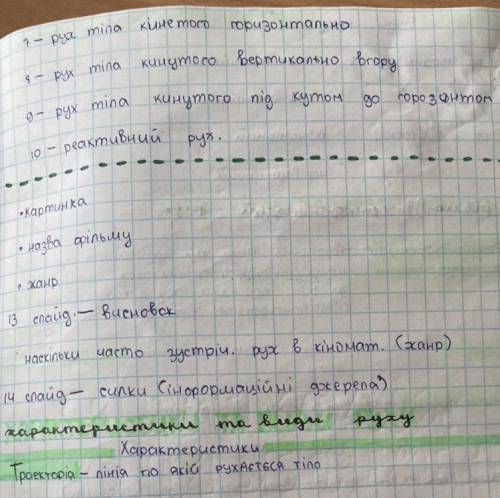 7 – рух тіла кинетого горизонтально
8 – рух тіла кинутого вертикально вгору
9 – рух тіла кинутого під кутом до горозонтом
10 – реактивний рух.
• картинка
• назва фільму
• жанр
13 слайд. – висновок
наскільки часто зустріч. рух в кіномат. (жанр)
14 слайд – силки (інформаційні джерела)
характеристики та види руху
Характеристики
Траекторія – лінія по якій рухається тіло